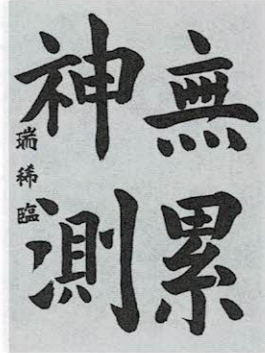 無累
神測
瑞稀臨